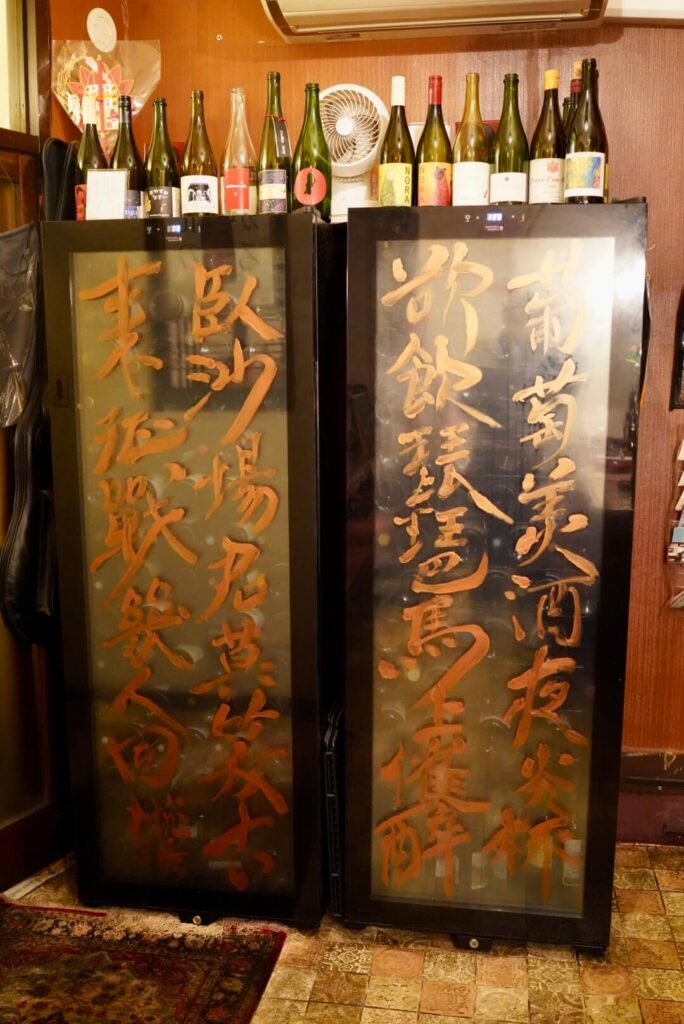 葡萄美酒夜光杯
欲飲琵琶馬上催醉
臥沙場君莫笑古
来征戰幾人回
NORA
NORA